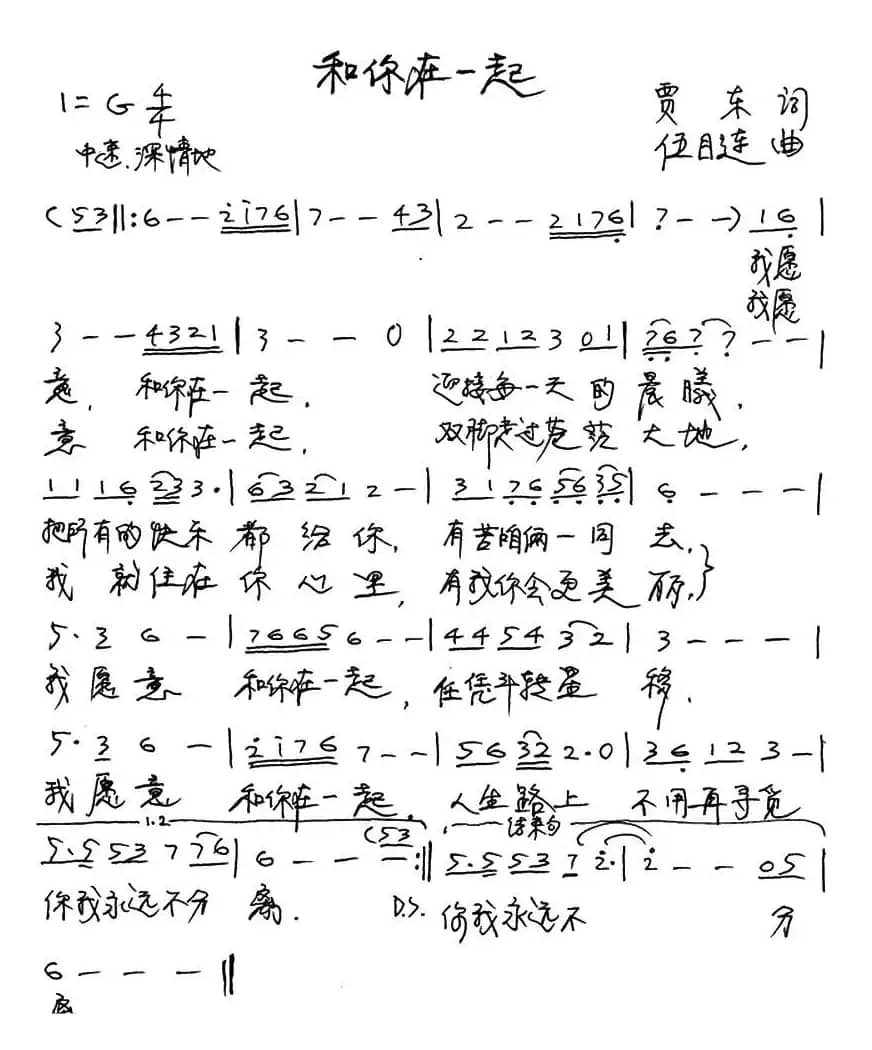 和你在一起
1=G 4/4
贾东词
中速.深情地
伍目连曲
(53‖:6--i̇i̇76|7--43|2--2176̣|7̣--)16̣|
我愿
我愿
3--4321|3--0|22123 01|7̣6̣7̣7̣--|
意, 和你在一起, 迎接每一天的晨曦,
意 和你在一起, 双脚走过苍茫大地,
1116̣233·|6321 2-|317̣6̣5̣6̣3̣5̣|6̣---|
把所有的快乐都给你, 有苦咱俩一同去,
我就住在你心里, 有我你会更美丽,}
5·36-|76656--|445432|3---|
我愿意 和你在一起, 任凭斗转星移.
5·36-|2̇i̇767--|56322·0|36̣123-|
我愿意 和你在一起, 人生路上 不用再寻觅
1.2 结束句
5·5537 76|6--(53:‖5·55372̇·|2̇--05|
你我永远不分离. D.S. 你我永远不 分
6---‖
离